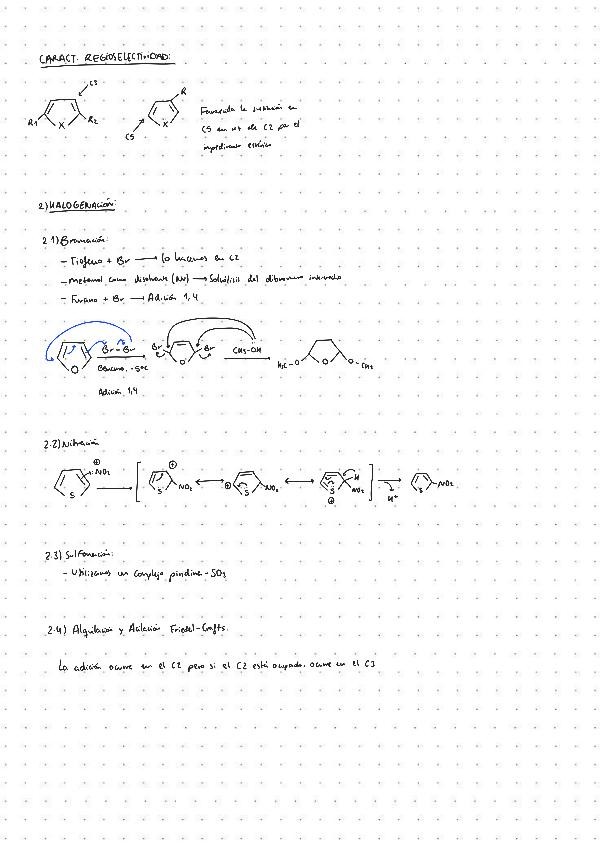 CARACT. REGIOSELECTIVIDAD:
C3
R1 X R2
R
X
C5
Favorecida la sustitución en
C5 en vez de C2 por el
impedimento estérico
2) HALOGENACIÓN:
2.1) Bromación:
- Tiofeno + Br → lo hacemos en C2
- Metanol como disolvente (Nu) → Solvólisis del dibromuro intermedio
- Furano + Br → Adición 1,4
O Br-Br Br O Br CH3-OH H3C-O O O-CH3
Benceno, -5ºC
Adición 1,4
2.2) Nitración
S ⊕NO2 [ S ⊕ NO2 ↔ ⊕ S NO2 ↔ S ⊕ H NO2 ] H+ S NO2
2.3) Sulfonación:
- Utilizamos un complejo piridina-SO3
2.4) Alquilación y Acilación Friedel-Crafts.
La adición ocurre en el C2 pero si el C2 está ocupado, ocurre en el C3